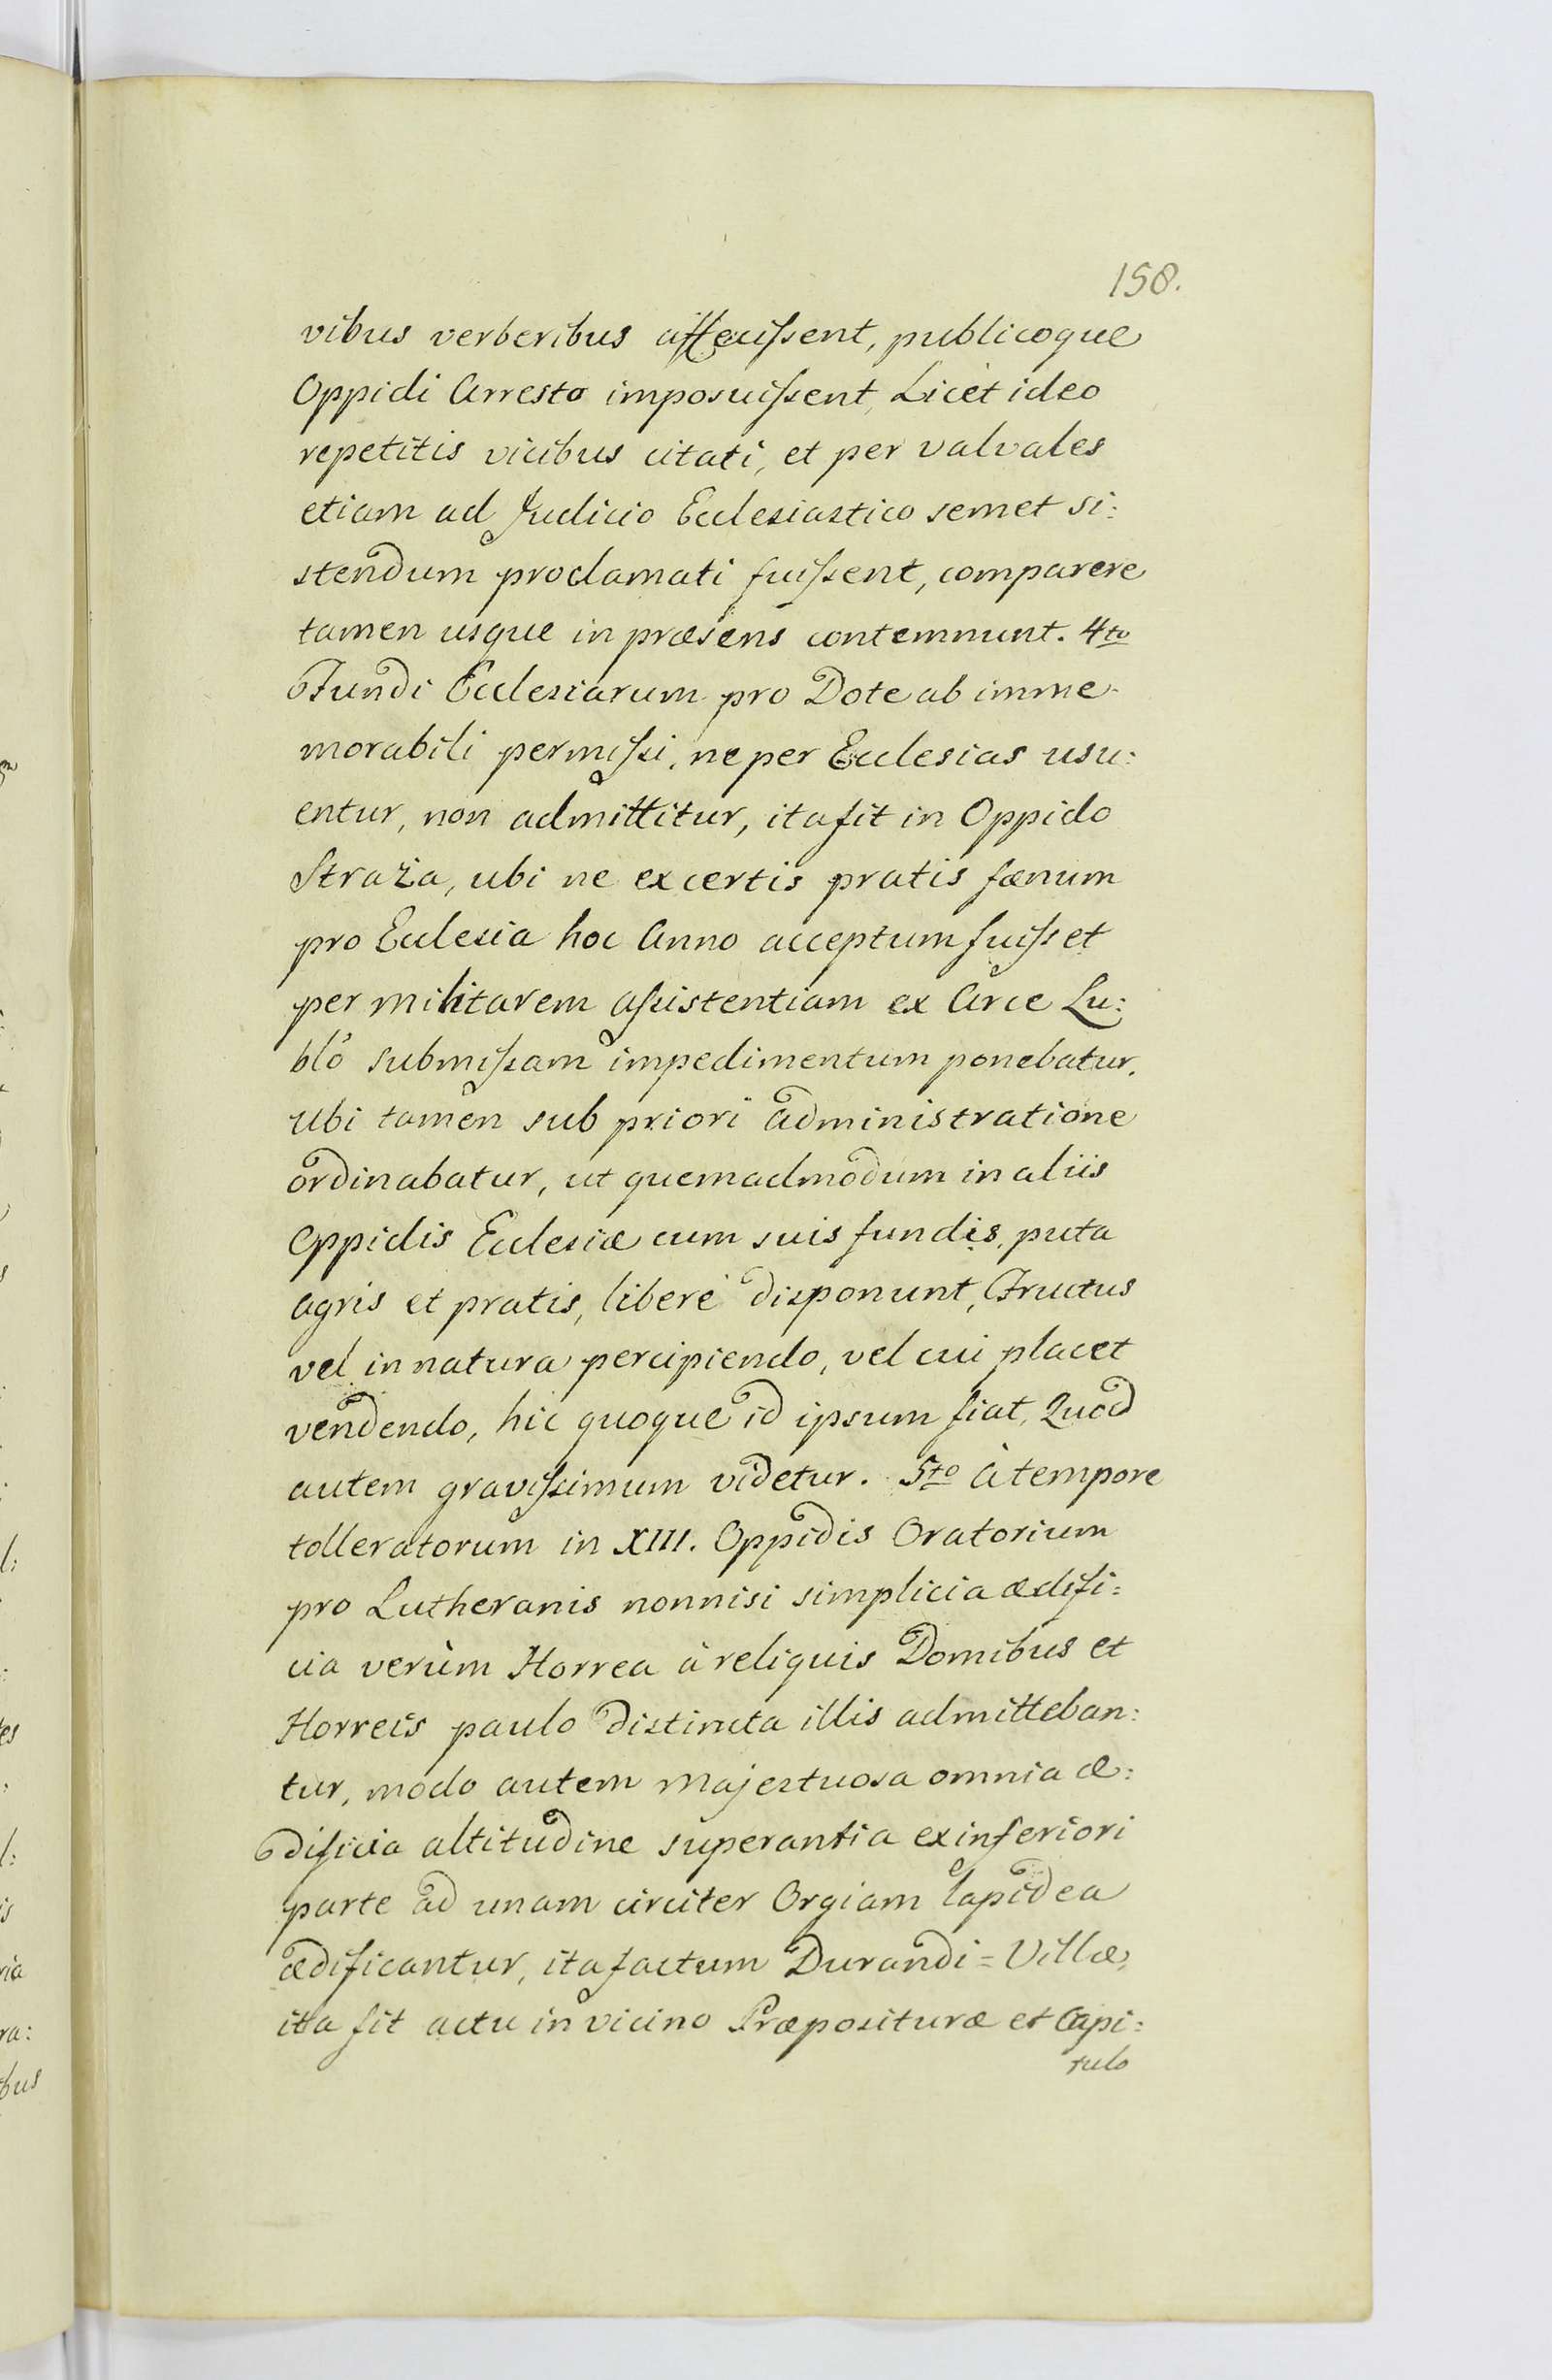 158.
vibus verberibus affecissent, publicoque
Oppidi Arresto imposuissent, Licet ideo
repetitis vicibus citati, et per valvales
etiam ad Judicio Ecclesiastico semet si:
stendum proclamati fuissent, comparere
tamen usque in præsens contemnunt. 4to
Fundi Ecclesiarum pro Dote ab imme-
morabili permissi, ne per Ecclesias usu:
entur, non admittitur, ita fit in Oppido
Straża, ubi ne ex certis pratis fœnum
pro Ecclesia hoc Anno acceptum fuisset
per militarem assistentiam ex Arce Lu:
bló submissam impedimentum ponebatur.
Ubi tamen sub priori administratione
ordinabatur, ut quemadmodum in aliis
Oppidis Ecclesiæ cum suis fundis, puta
agris et pratis, liberè disponunt, Fructus
vel in natura percipiendo, vel cui placet
vendendo, hic quoque id ipsum fiat, Quod
autem gravissimum videtur. 5to à tempore
tolleratorum in XIII. Oppidis Oratorium
pro Lutheranis nonnisi simplicia ædifi:
cia verùm Horrea à reliquis Domibus et
Horreis paulo distincta illis admitteban:
tur, modo autem majestuosa omnia æ:
dificia altitudine superantia ex inferiori
parte ad unam circiter Orgiam lapidea
ædificantur, ita factum Durandi=Villæ,
ita fit actu in vicino Præposituræ et Capi:
tulo